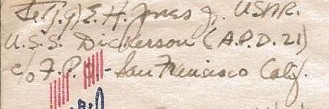 Lt.(jg) E. H. Jones Jr. USNR.
U.S.S. Dickerson (A.P.D. 21)
c/o F.P.O. - San Francisco Calif.